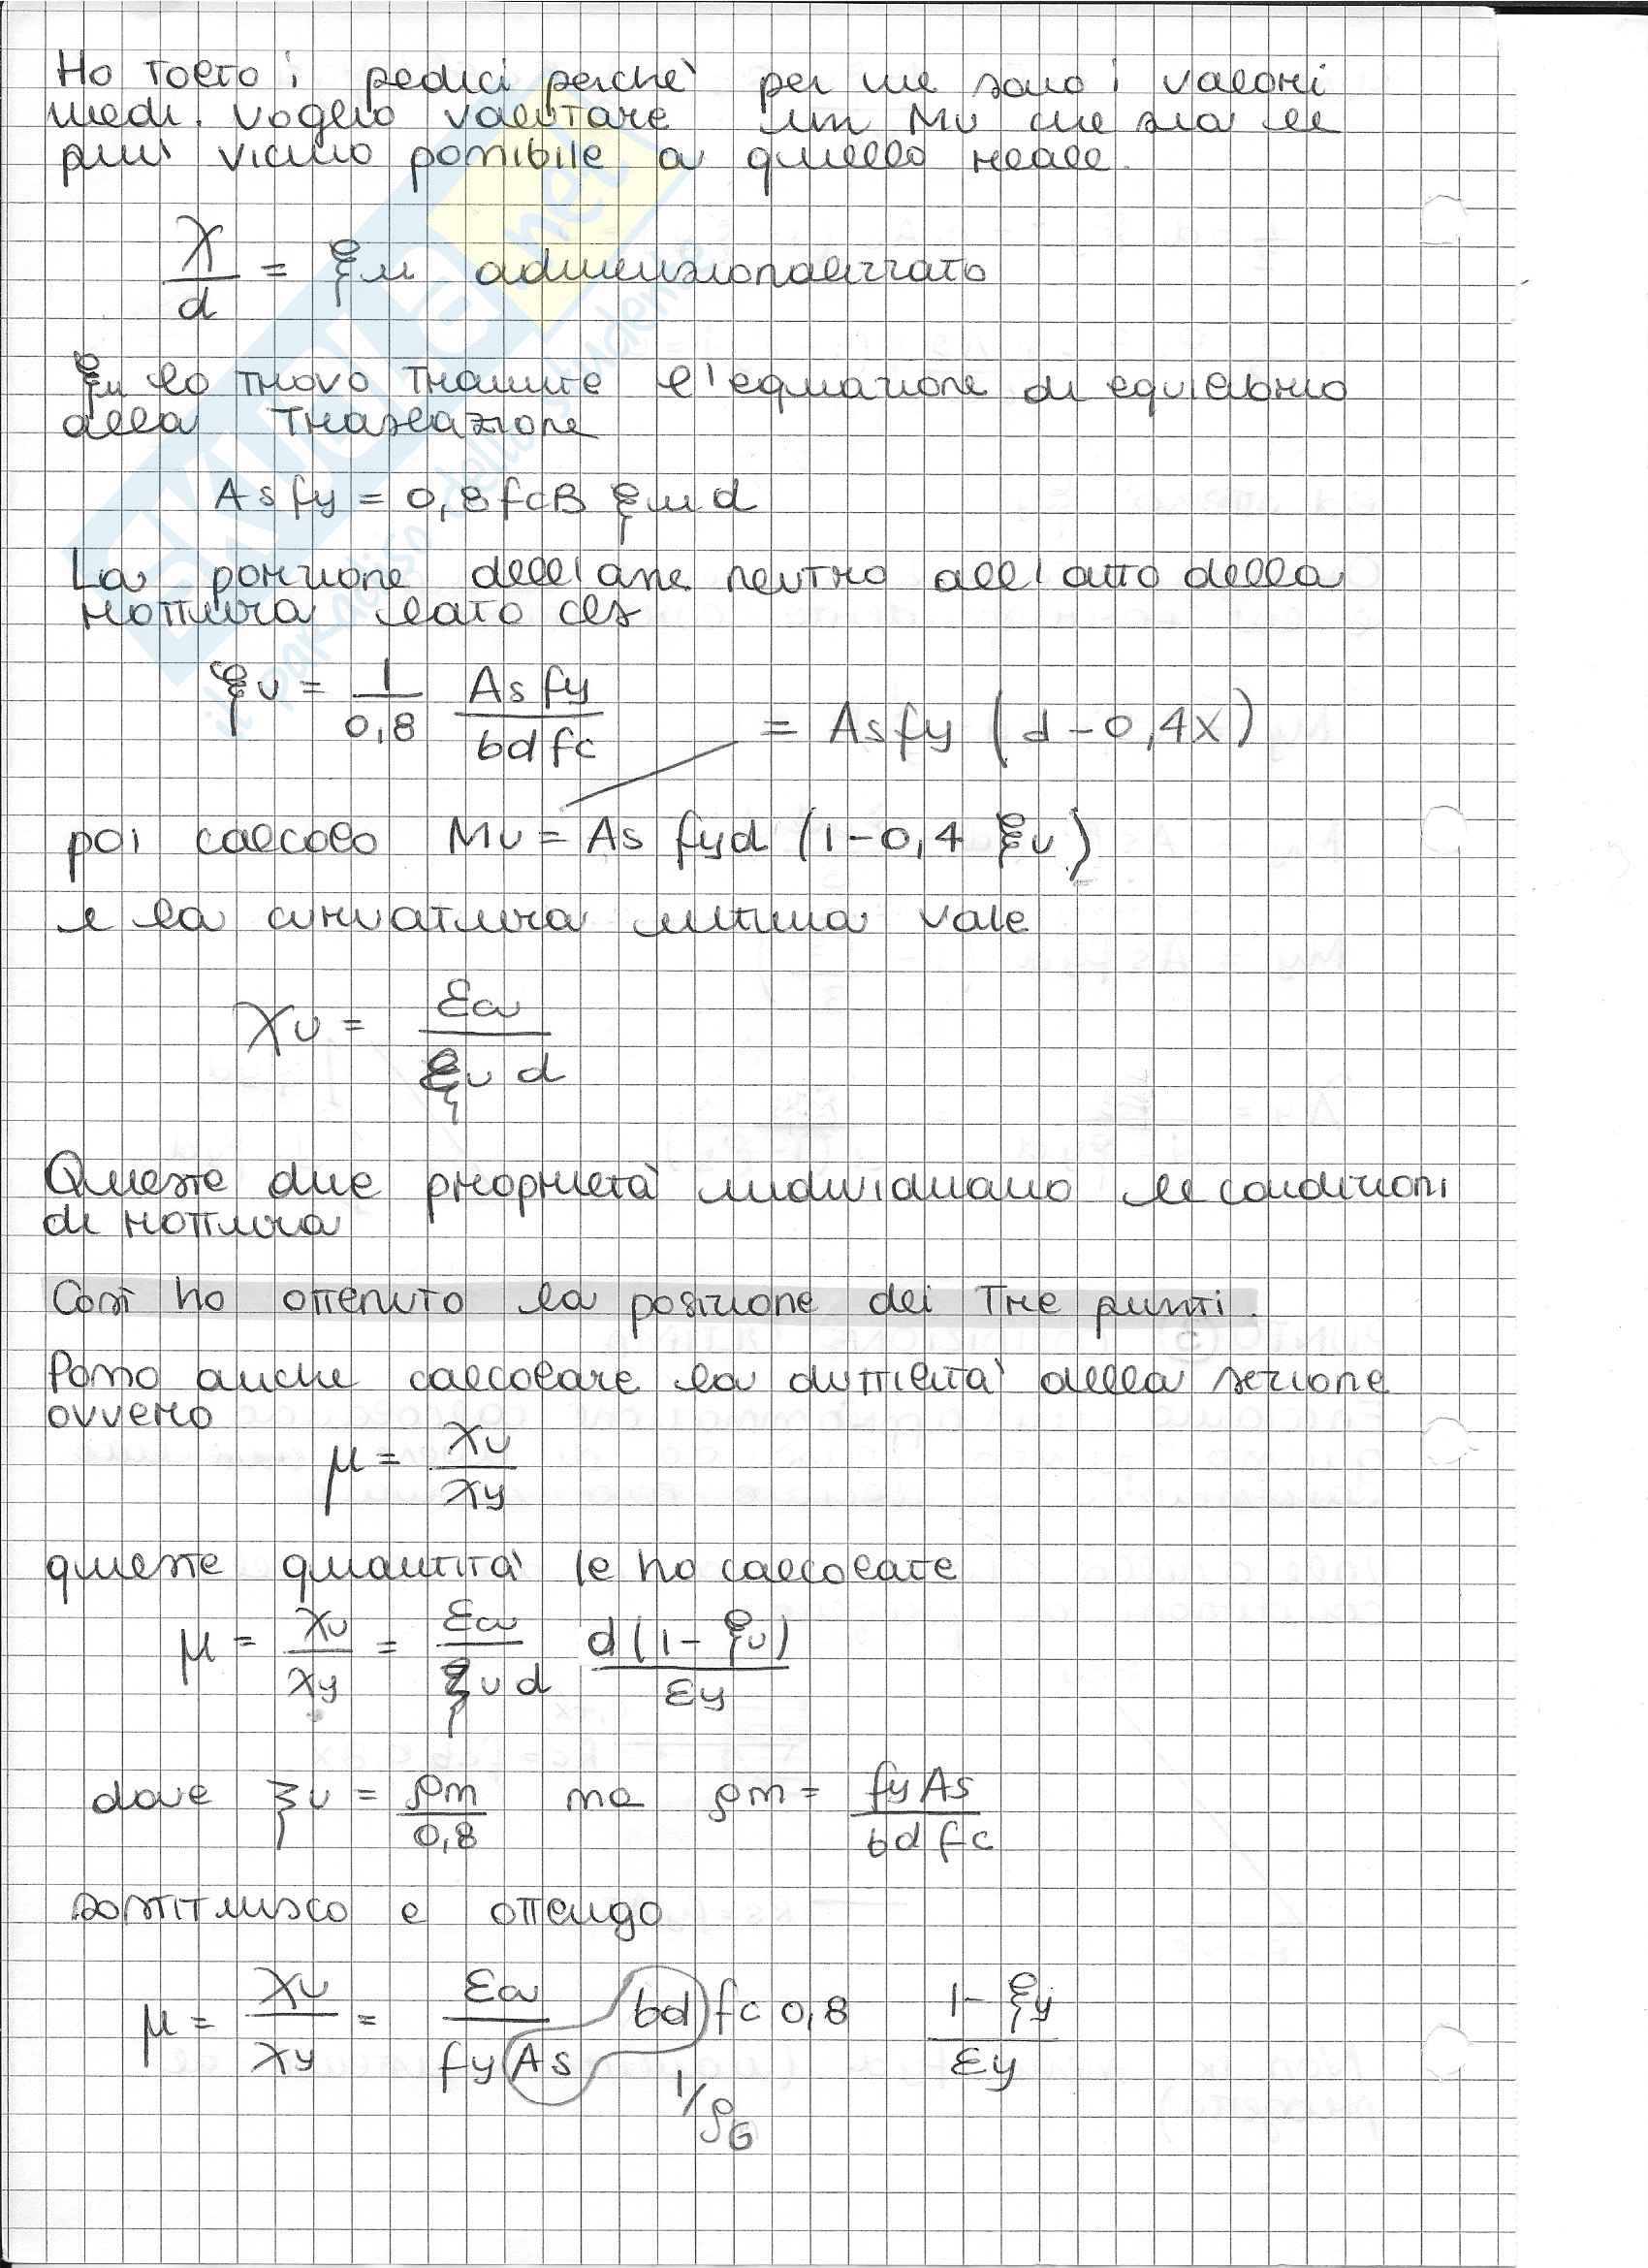 Ho tolto i pedici perchè per me sono i valori
medi. Voglio valutare un Mu che sia il
più vicino possibile a quello reale.
x/d = ξu adimensionalizzato
ξu lo trovo tramite l'equazione di equilibrio
alla traslazione
As fy = 0,8 fc B ξu d
La posizione dell'asse neutro all'atto della
rottura lato cls
ξu = 1/0,8 As fy/bd fc
= As fy (d - 0,4x)
poi calcolo Mu = As fyd (1-0,4 ξu)
e la curvatura ultima vale
χu = εcu/ξu d
Queste due proprietà individuano le condizioni
di rottura
Così ho ottenuto la posizione dei tre punti.
Posso anche calcolare la duttilità della sezione
ovvero
μ = χu/χy
queste quantità le ho calcolate
μ = χu/χy = εcu/ξu d d(1-ξu)/εy
dove ξu = ρm/0,8 ma ρm = fy As/bd fc
sostituisco e ottengo
μ = χu/χy = εcu/fy As bd fc 0,8 1-ξy/εy
1/ρG